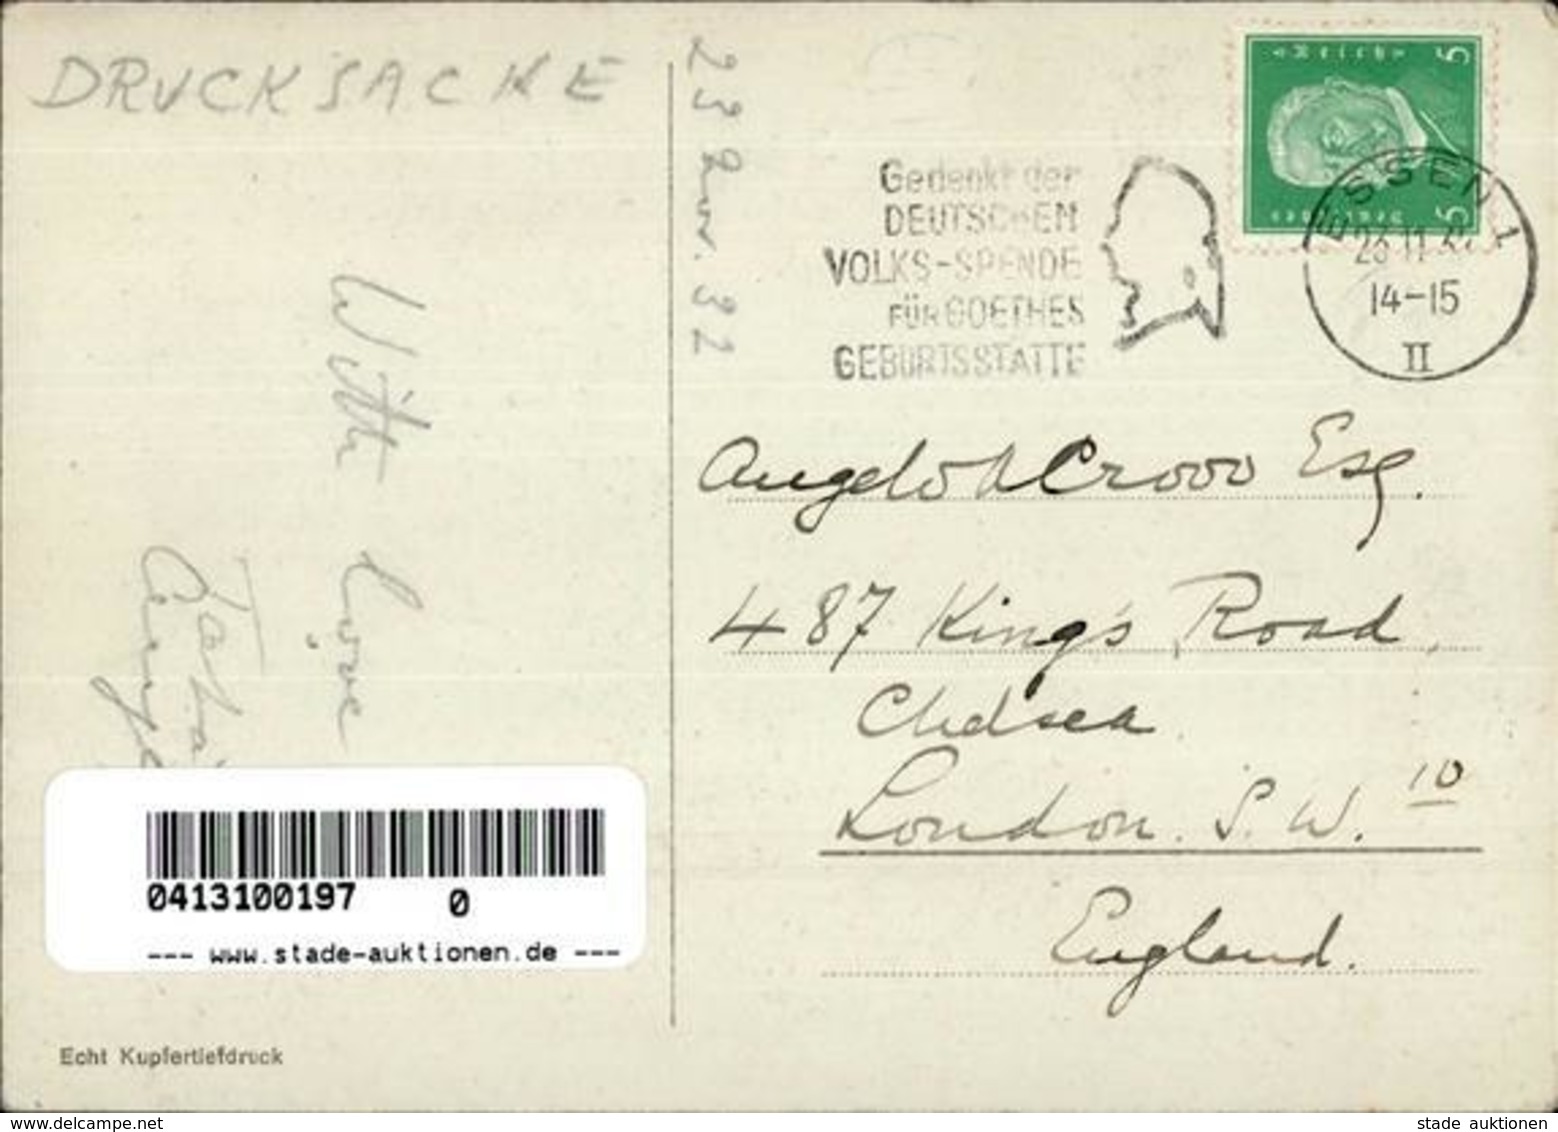 DRUCKSACHE
23 Nov. 32
5 Deutsches Reich 5
Gedenkt der
DEUTSCHEN
VOLKS-SPENDE
FÜR GOETHES
GEBURTSSTÄTTE
ESSEN 1
23.11.
14-15
II
With love
Angelo Crovo Esq.
487 King's Road,
Chelsea
London. S.W. 10
England.
0413100197 0
--- www.stade-auktionen.de ---
Echt Kupfertiefdruck
www.delcampe.net
stade auktionen